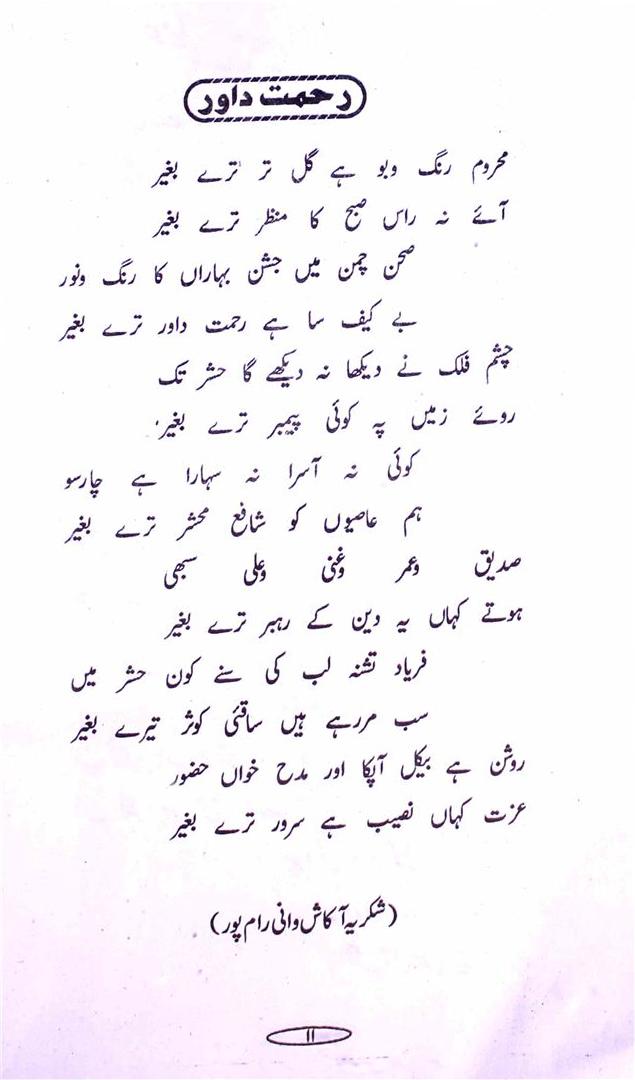 رحمت داور
محروم رنگ وبو ہے گل تر ترے بغیر
آئے نہ راس صبح کا منظر ترے بغیر
صحن چمن میں جشن بہاراں کا رنگ ونور
بے کیف سا ہے رحمت داور ترے بغیر
چشم فلک نے دیکھا نہ دیکھے گا حشر تک
روئے زمیں پہ کوئی پیمبر ترے بغیر
کوئی نہ آسرا نہ سہارا ہے چارسو
ہم عاصیوں کو شافع محشر ترے بغیر
صدیق وعمر وغنی وعلی سبھی
ہوتے کہاں یہ دین کے رہبر ترے بغیر
فریاد تشنہ لب کی سنے کون حشر میں
سب مررہے ہیں ساقئی کوثر تیرے بغیر
روشن ہے بیکل آپکا اور مدح خواں حضور
عزت کہاں نصیب ہے سرور ترے بغیر
(شکریہ آکاش وانی رام پور)
۱۱